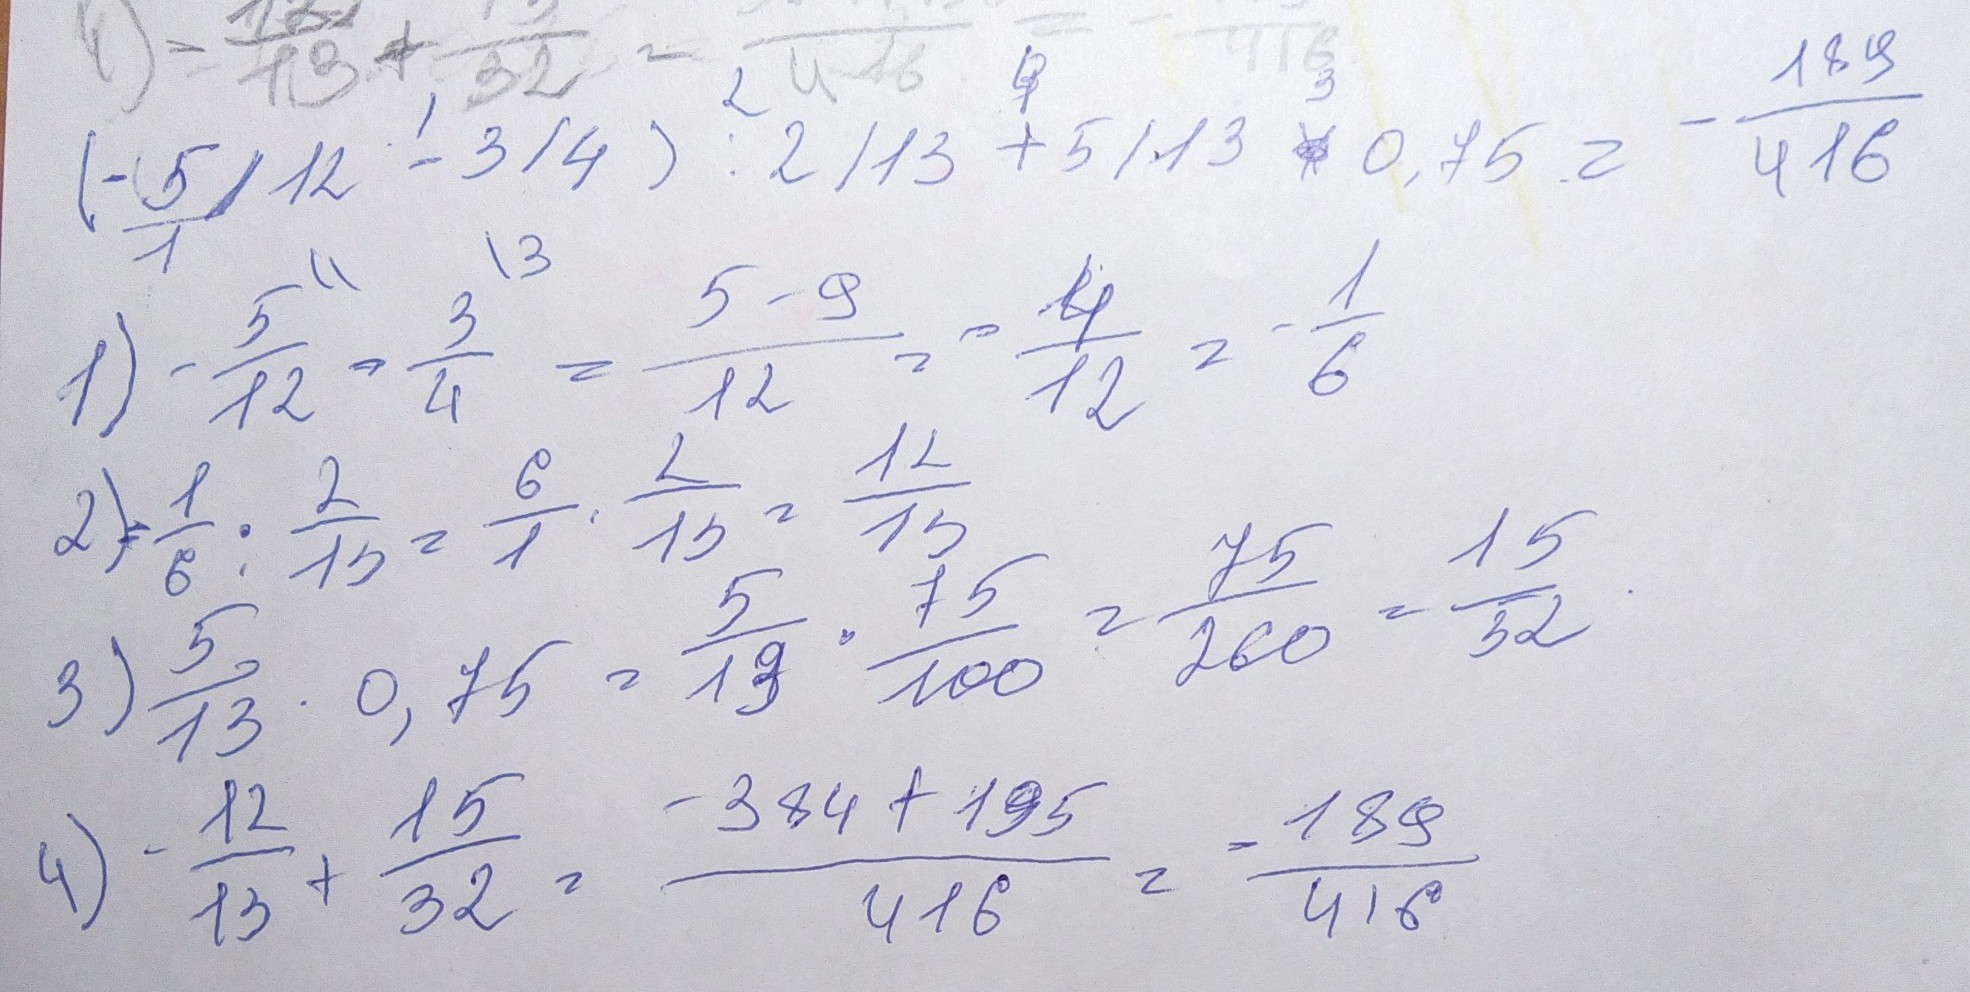 4) = 12/13 + 15/32 = /416 = - /416
(-5/12 - 3/4) : 2/13 + 5/13 * 0,75 = - 189/416
1) - 5/12 - 3/4 = 5-9/12 = - 4/12 = - 1/6
2) - 1/6 : 2/13 = 6/1 · 2/13 = 12/13
3) 5/13 · 0,75 = 5/13 · 75/100 = 75/260 = 15/52
4) - 12/13 + 15/32 = -384+195/416 = - 189/416